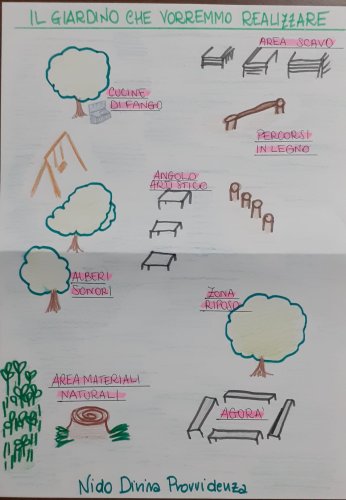 IL GIARDINO CHE VORREMMO REALIZZARE
AREA SCAVO
CUCINE
DI FANGO
PERCORSI
IN LEGNO
ANGOLO
ARTISTICO
ALBERI
SONORI
ZONA
RIPOSO
AREA MATERIALI
NATURALI
AGORÀ
Nido Divina Provvidenza